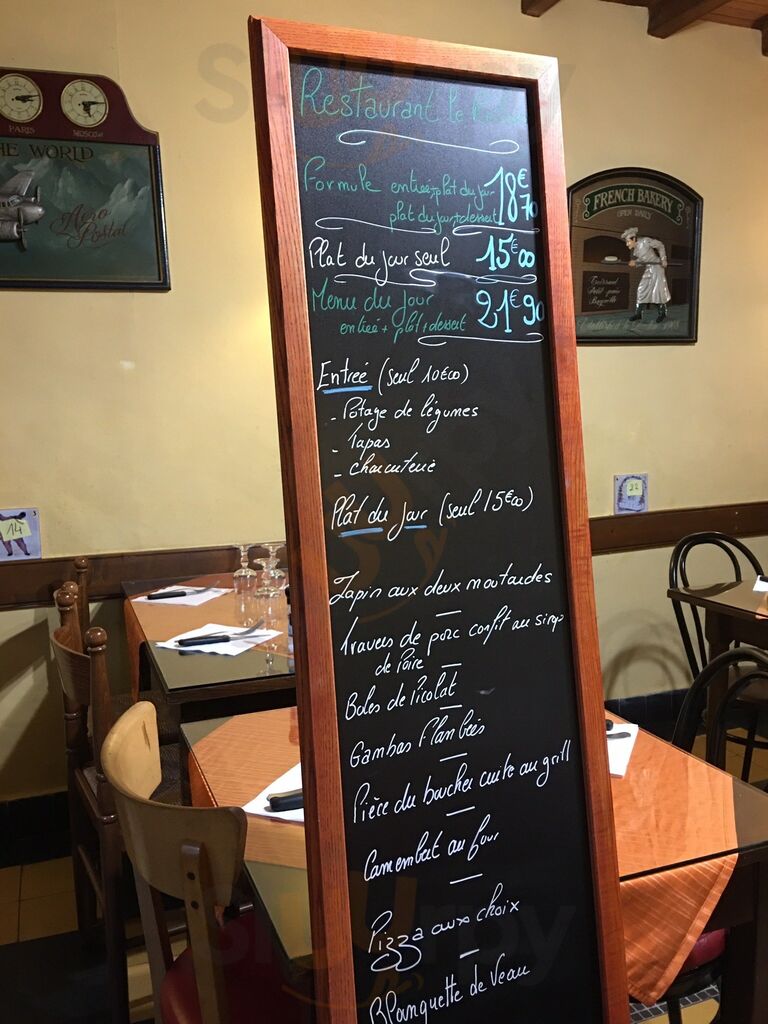 PARIS
MOSCOW
THE WORLD
Aero
Postal
FRENCH BAKERY
OPEN DAILY
Restaurant le
Formule entrée+plat du jour 18€70
plat du jour+dessert
Plat du jour seul 15€00
Menu du jour 21€90
entrée + plat + dessert
Entrée (seul 10€00)
- Potage de légumes
- Tapas
- Charcuterie
Plat du Jour (seul 15€00)
Lapin aux deux moutardes
Travers de porc confit au sirop
de Poire
Boles de Picolat
Gambas Flambées
Pièce du boucher cuite au grill
Camembert au four
Pizza aux choix
Blanquette de Veau
14
22